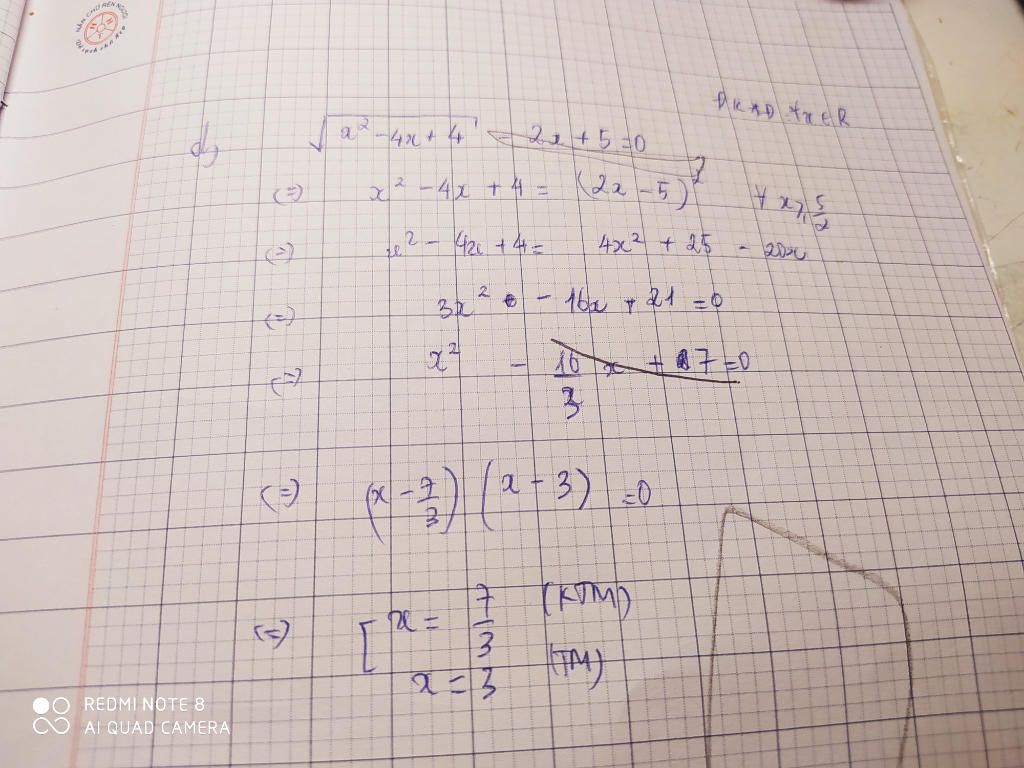 ĐKXĐ ∀x∈R
d, √x² - 4x + 4 - 2x + 5 = 0
(=) x² - 4x + 4 = (2x - 5)² ∀ x ≥ 5/2
(=) x² - 4x + 4 = 4x² + 25 - 20x
(=) 3x² - 16x + 21 = 0
(=) x² - 16/3 x + 7 = 0
(=) (x - 7/3) (x - 3) = 0
(=) [ x = 7/3 (KTM)
x = 3 (TM)
REDMI NOTE 8
AI QUAD CAMERA